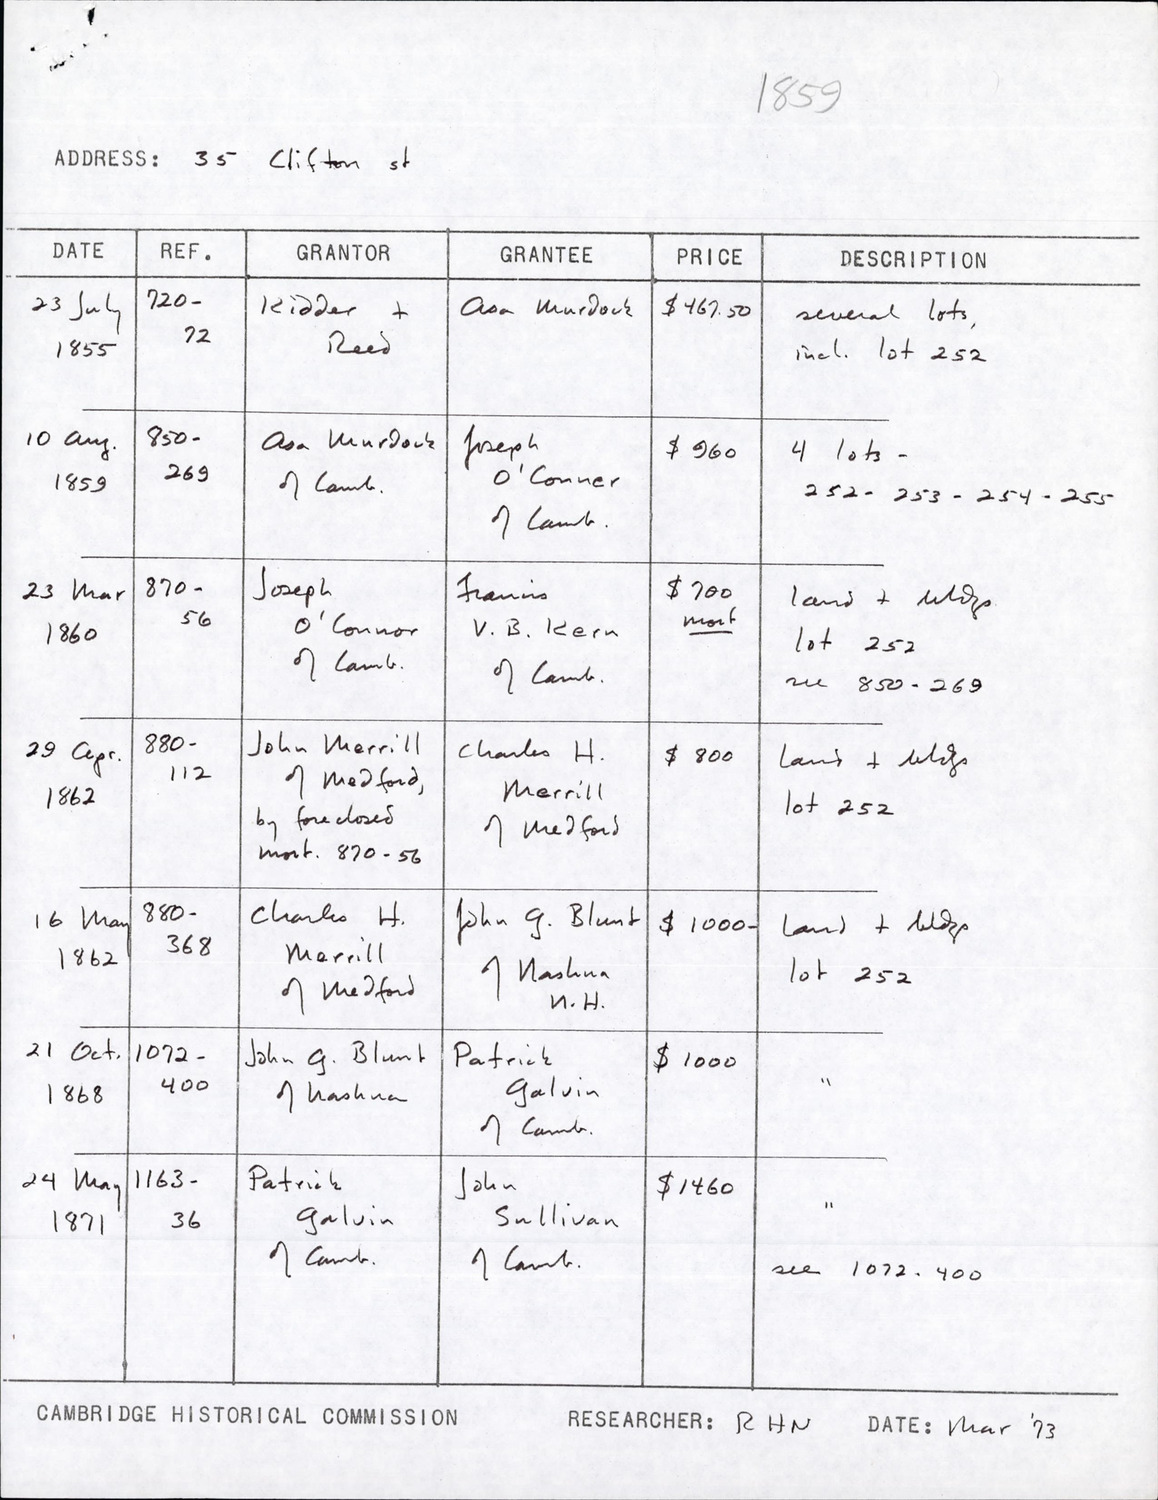 1859
ADDRESS: 35 Clifton st
DATE REF. GRANTOR GRANTEE PRICE DESCRIPTION
23 July 720- Kidder + Asa Murdock $467.50 several lots,
1855 72 Reed incl. lot 252
10 Aug. 850- Asa Murdock Joseph $960 4 lots -
1859 269 of Camb. O'Conner 252- 253- 254- 255
of Camb.
23 Mar 870- Joseph Francis $700 land + bldgs
1860 56 O'Connor V. B. Kern mort lot 252
of Camb. of Camb. see 850-269
29 Apr. 880- John Merrill Charles H. $800 land + bldgs
1862 112 of Medford, Merrill lot 252
by foreclosed of Medford
mort. 870-56
16 May 880- Charles H. John G. Blunt $1000- land + bldgs
1862 368 Merrill of Nashua lot 252
of Medford N.H.
21 Oct. 1072- John G. Blunt Patrick $1000 "
1868 400 of Nashua Galvin
of Camb.
24 May 1163- Patrick John $1460 "
1871 36 Galvin Sullivan
of Camb. of Camb. see 1072-400
CAMBRIDGE HISTORICAL COMMISSION RESEARCHER: RHN DATE: Mar '73